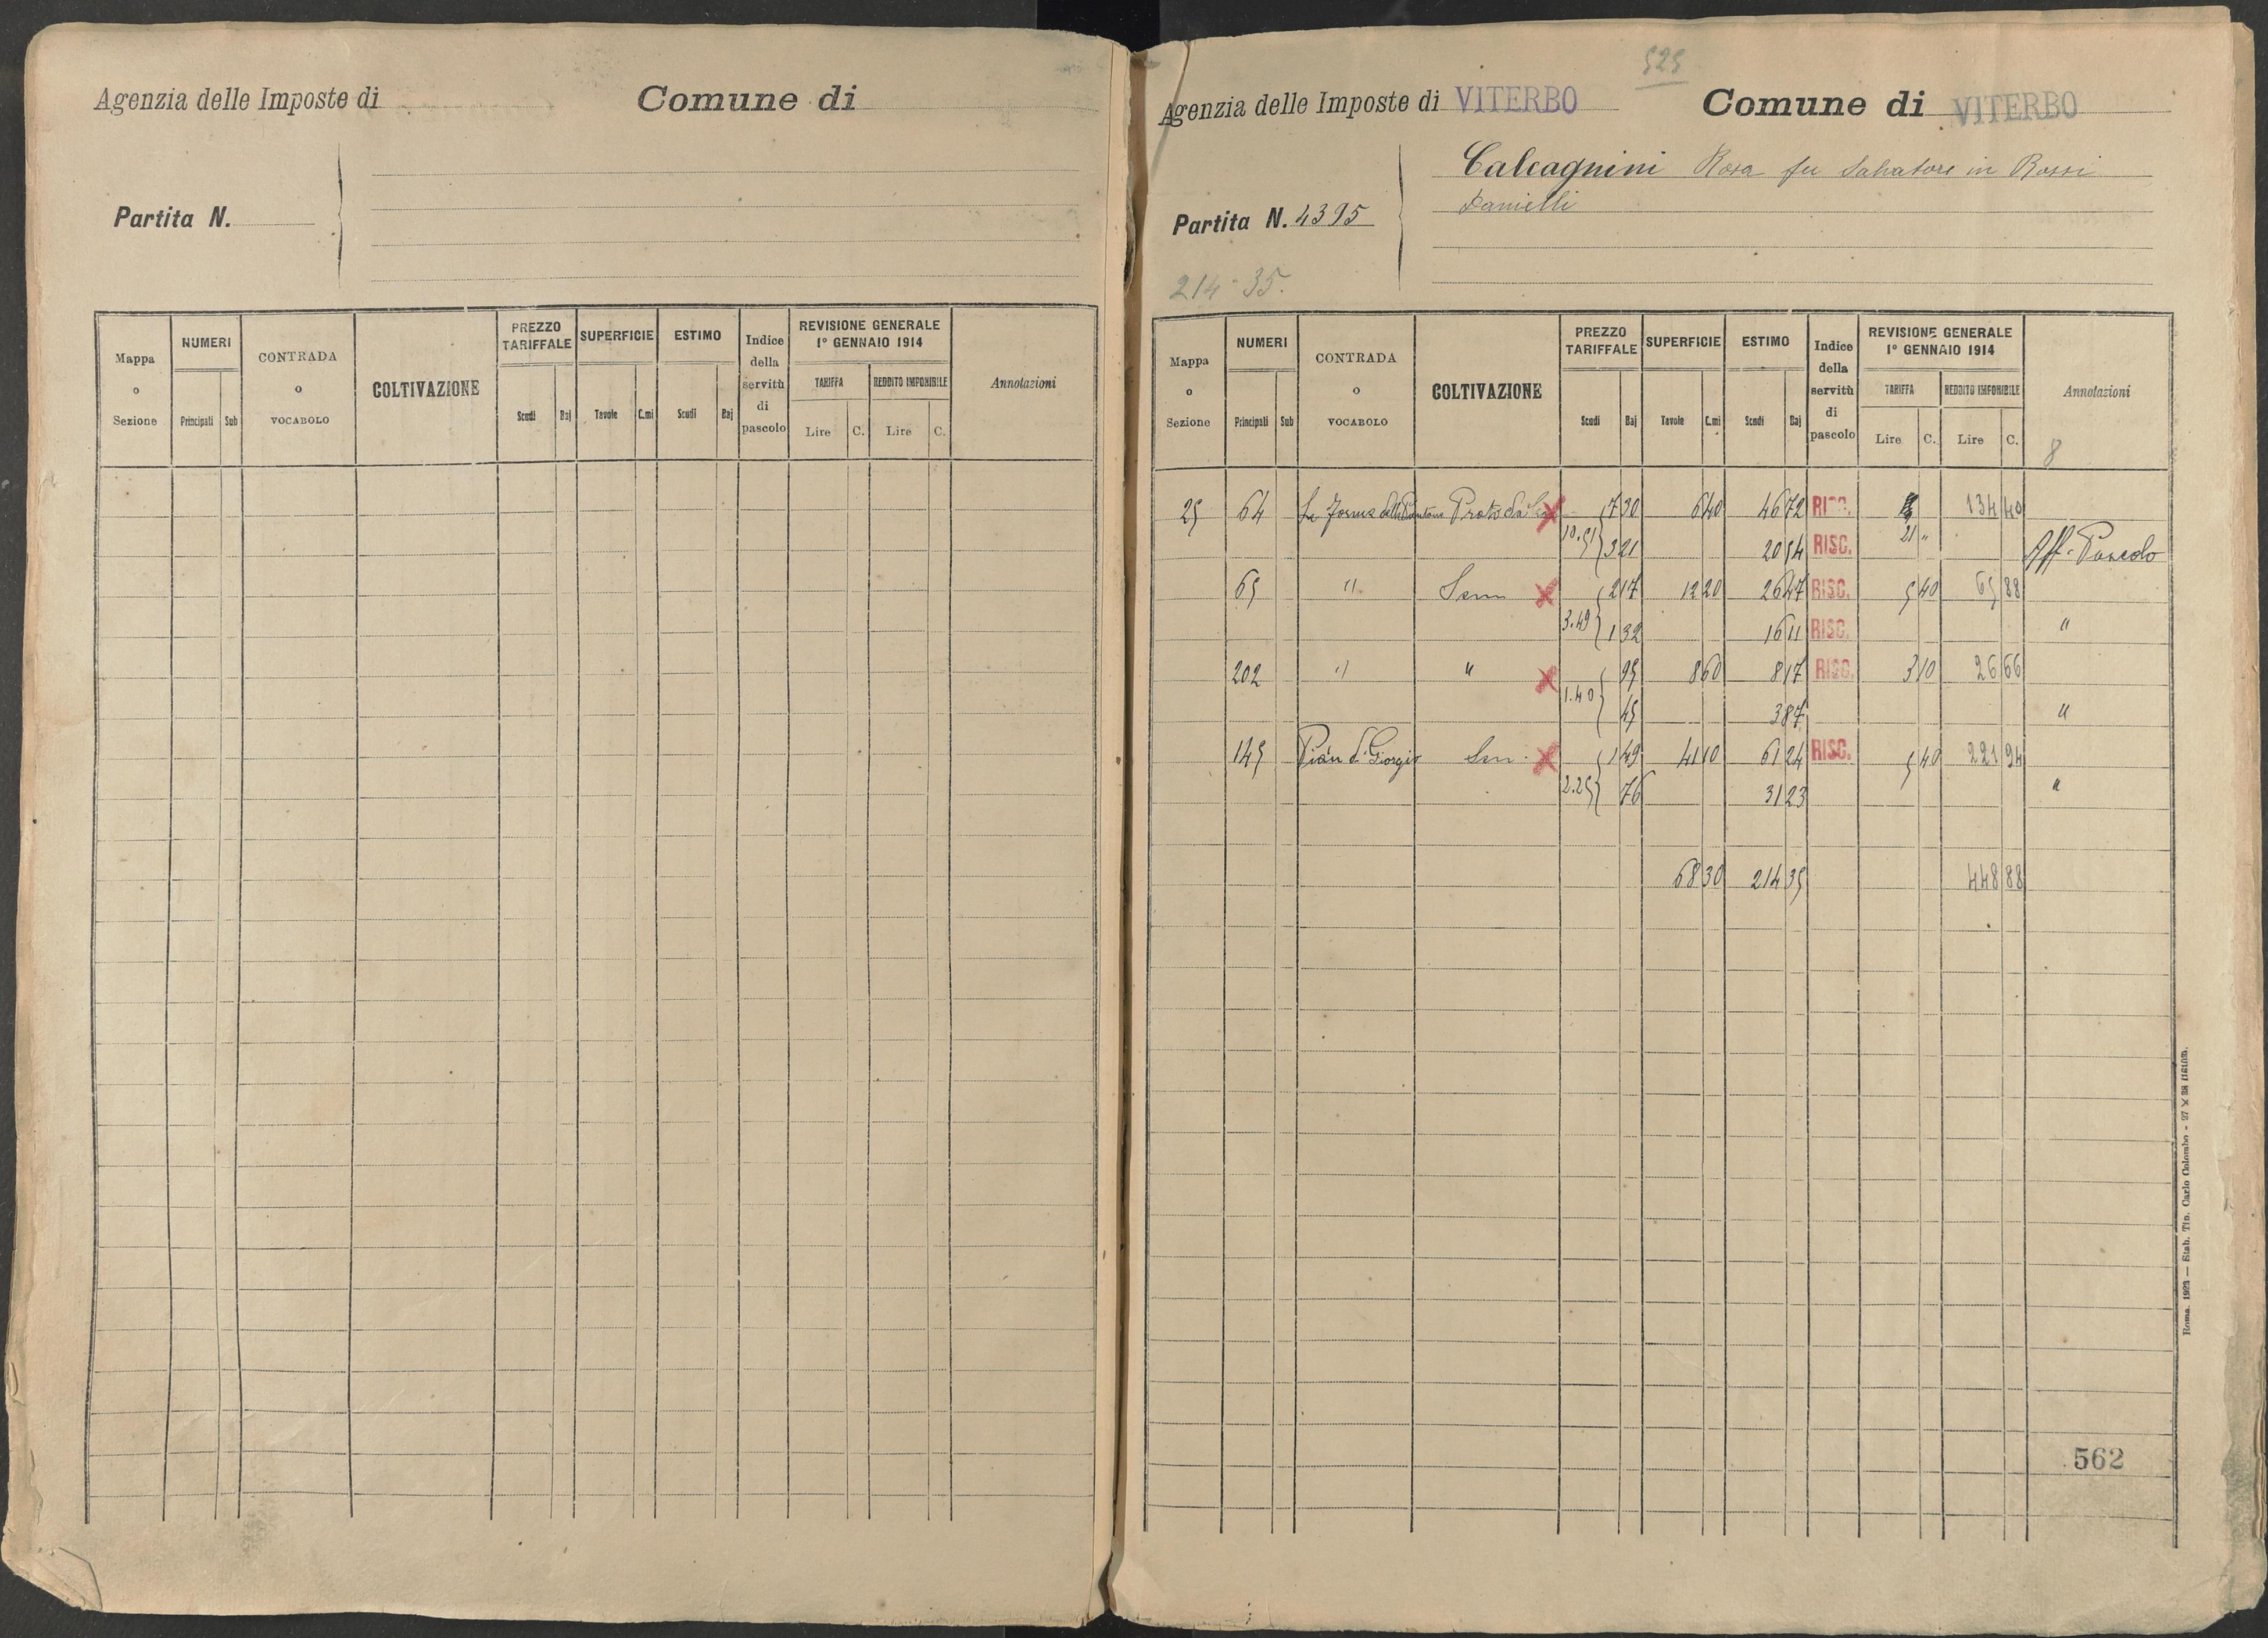 Agenzia delle Imposte di
Comune di
Partita N.
Mappa o Sezione
NUMERI
Principali Sub
CONTRADA o VOCABOLO
COLTIVAZIONE
PREZZO TARIFFALE
Scudi Baj
SUPERFICIE
Tavole C.mi
ESTIMO
Scudi Baj
Indice della servitù di pascolo
REVISIONE GENERALE 1° GENNAIO 1914
TARIFFA
Lire C.
REDDITO IMPONIBILE
Lire C.
Annotazioni
525
Agenzia delle Imposte di VITERBO
Comune di VITERBO
Calcagnini Rosa fu Salvatore in Rossi
Danielli
Partita N. 4395
214-35.
Mappa o Sezione
NUMERI
Principali Sub
CONTRADA o VOCABOLO
COLTIVAZIONE
PREZZO TARIFFALE
Scudi Baj
SUPERFICIE
Tavole C.mi
ESTIMO
Scudi Baj
Indice della servitù di pascolo
REVISIONE GENERALE 1° GENNAIO 1914
TARIFFA
Lire C.
REDDITO IMPONIBILE
Lire C.
Annotazioni
8
25 64 Prato 7 30 6 40 46 72 RISC. 134 40
10.51 3 21 20 54 RISC. 21 " Aff. Pascolo
65 " Sem 2 17 12 20 26 47 RISC. 5 40 65 88
3.49 1 32 16 11 RISC. "
202 " " 95 8 60 8 17 RISC. 3 10 26 66
1.40 45 3 87 "
145 Pian di Giorgio Sem. 1 49 41 10 61 24 RISC. 5 40 221 94
2.25 76 31 23 "
68 30 214 35 448 88
562
Roma, 1923 — Stab. Tip. Carlo Colombo - 27 X 38